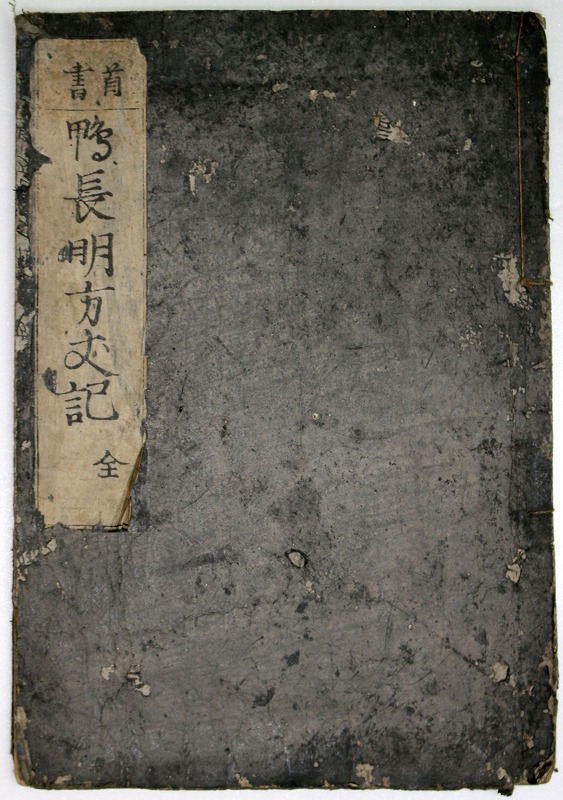 首書
鴨長明方丈記
全